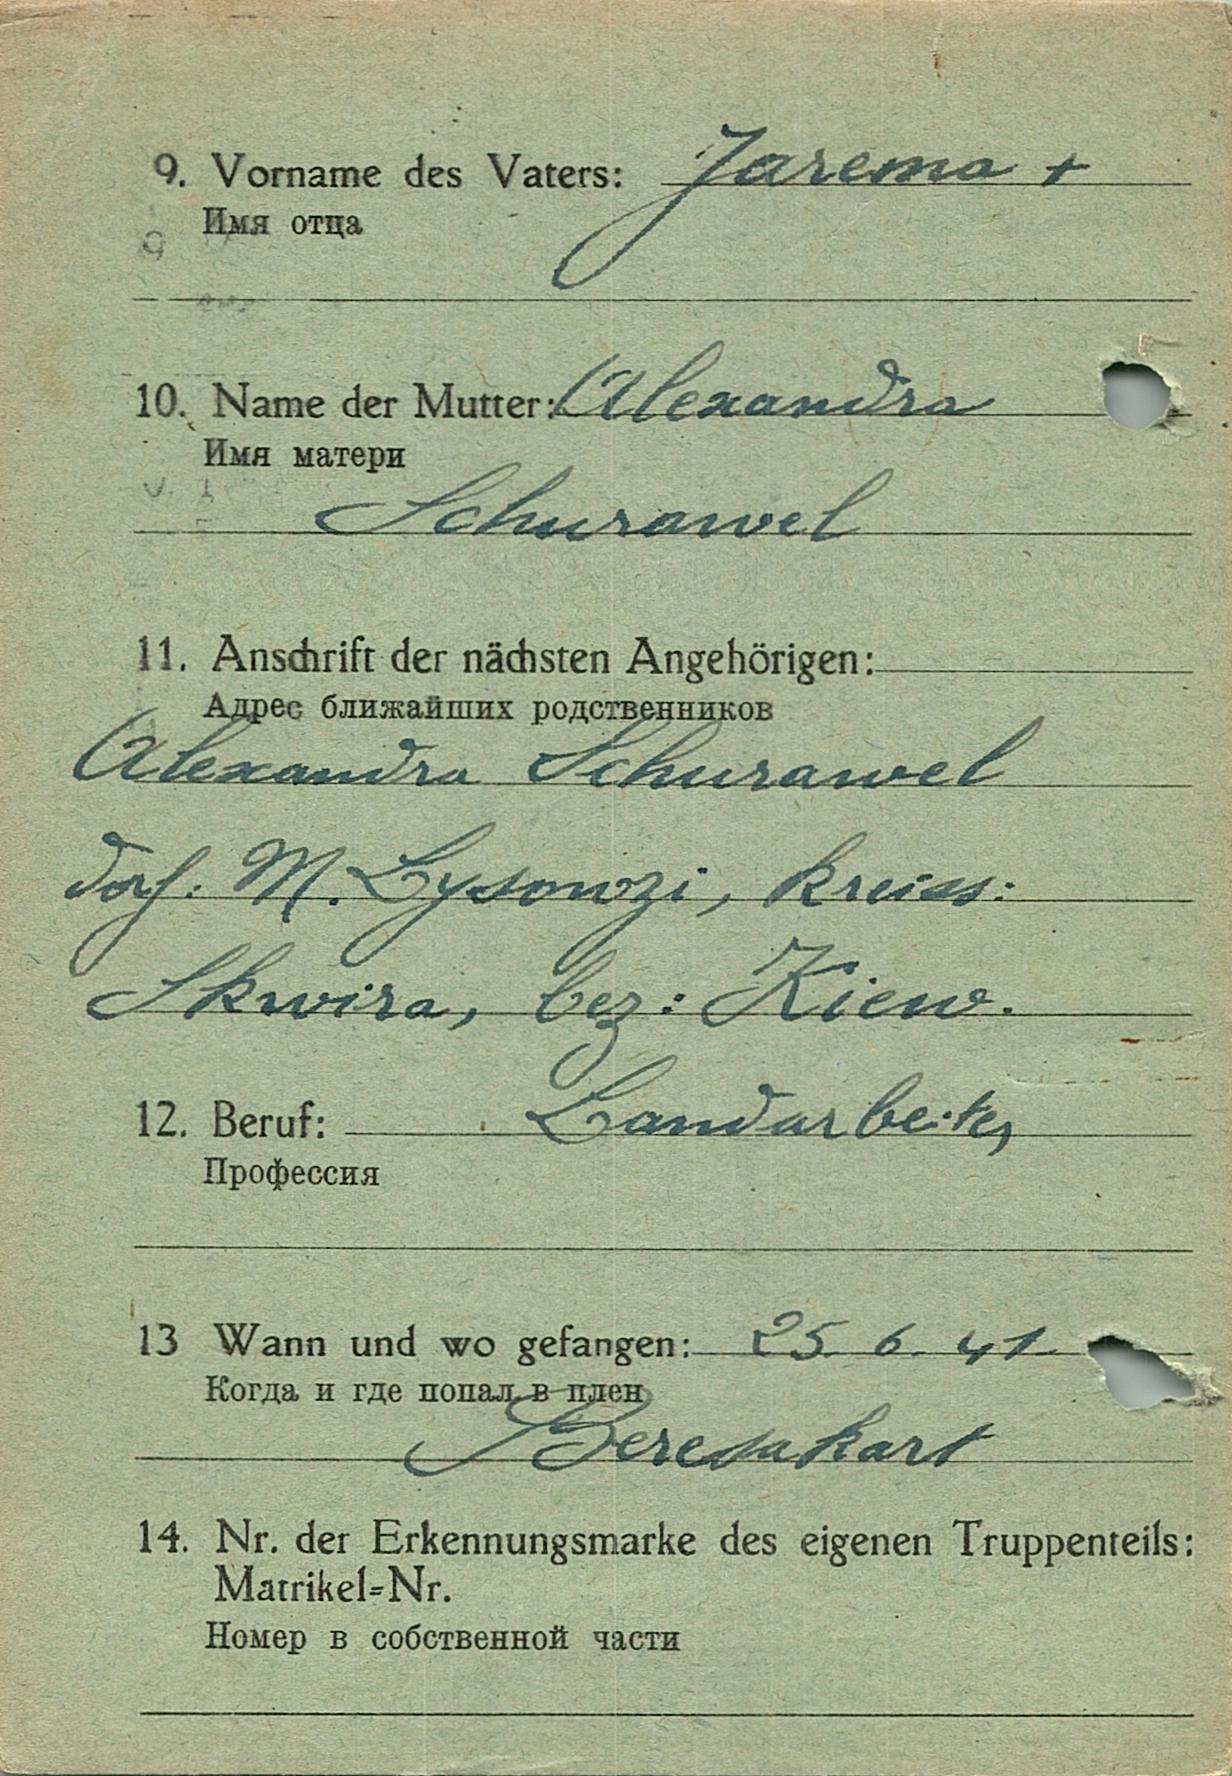 9. Vorname des Vaters: Jarema +
Имя отца
10. Name der Mutter: Alexandra
Имя матери
Schurawel
11. Anschrift der nächsten Angehörigen:
Адрес ближайших родственников
Alexandra Schurawel
dorf. M. Lysowzi, kreiss:
Skwira, bez: Kiew.
12. Beruf: Landarbeiter
Профессия
13 Wann und wo gefangen: 25. 6. 41.
Когда и где попал в плен
14. Nr. der Erkennungsmarke des eigenen Truppenteils:
Matrikel=Nr.
Номер в собственной части